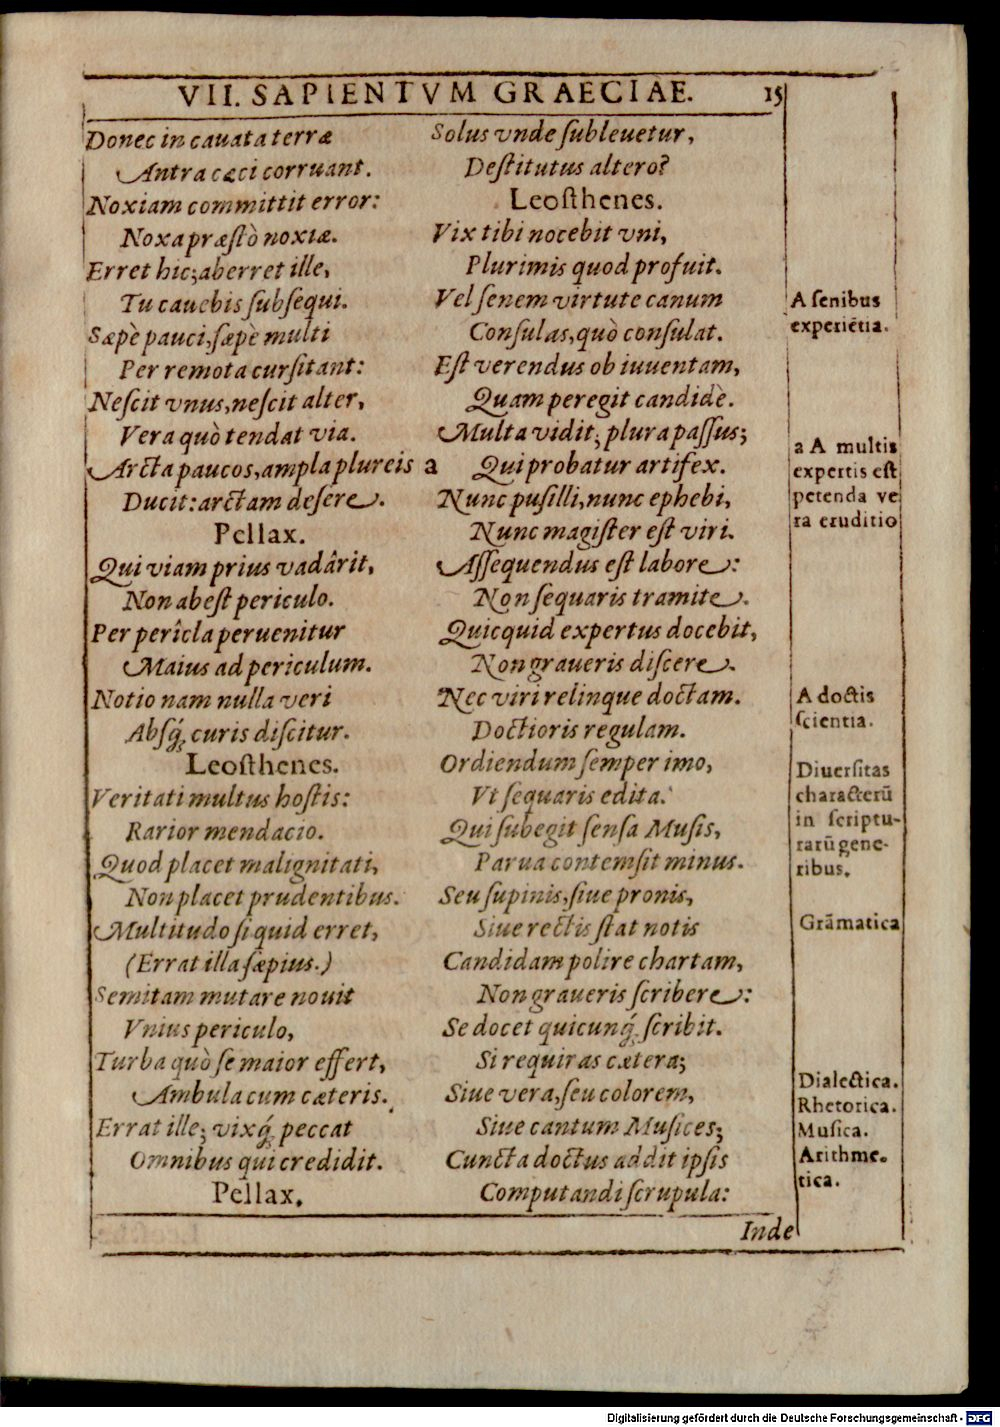 VII. SAPIENTVM GRAECIAE. 15
Donec in cauata terræ
Antra cæci corruant.
Noxiam committit error:
Noxa præstò noxiæ.
Erret hic; aberret ille,
Tu cauebis subsequi.
Sæpè pauci, sæpè multi
Per remota cursitant:
Nescit vnus, nescit alter,
Vera quò tendat via.
Arcta paucos, ampla plureis
Ducit: arctam desere.
Pellax.
Qui viam prius vadârit,
Non abest periculo.
Per perîcla peruenitur
Maius ad periculum.
Notio nam nulla veri
Absq́; curis discitur.
Leosthenes.
Veritati multus hostis:
Rarior mendacio.
Quod placet malignitati,
Non placet prudentibus.
Multitudo si quid erret,
(Errat illa sæpius.)
Semitam mutare nouit
Vnius periculo,
Turba quò se maior effert,
Ambula cum cæteris.
Errat ille; vixq́; peccat
Omnibus qui credidit.
Pellax.
Solus vnde subleuetur,
Destitutus altero?
Leosthenes.
Vix tibi nocebit vni,
Plurimis quod profuit.
Vel senem virtute canum
Consulas, quò consulat.
Est verendus ob iuuentam,
Quam peregit candidè.
Multa vidit; plura passus;
a Qui probatur artifex.
Nunc pusilli, nunc ephebi,
Nunc magister est viri.
Assequendus est labore:
Non sequaris tramite.
Quicquid expertus docebit,
Non graueris discere.
Nec viri relinque doctam.
Doctioris regulam.
Ordiendum semper imo,
Vt sequaris edita.
Qui subegit sensa Musis,
Parua contemsit minus.
Seu supinis, siue pronis,
Siue rectis stat notis
Candidam polire chartam,
Non graueris scribere:
Se docet quicunq́; scribit.
Si requiras cætera;
Siue vera, seu colorem,
Siue cantum Musices;
Cuncta doctus addit ipsis
Computandi scrupula:
Inde
A senibus
experiētia.
a A multis
expertis est
petenda ve
ra eruditio
A doctis
scientia.
Diuersitas
characterū
in scriptu-
rarū gene-
ribus.
Grāmatica
Dialectica.
Rhetorica.
Musica.
Arithme-
tica.
Digitalisierung gefördert durch die Deutsche Forschungsgemeinschaft - DFG